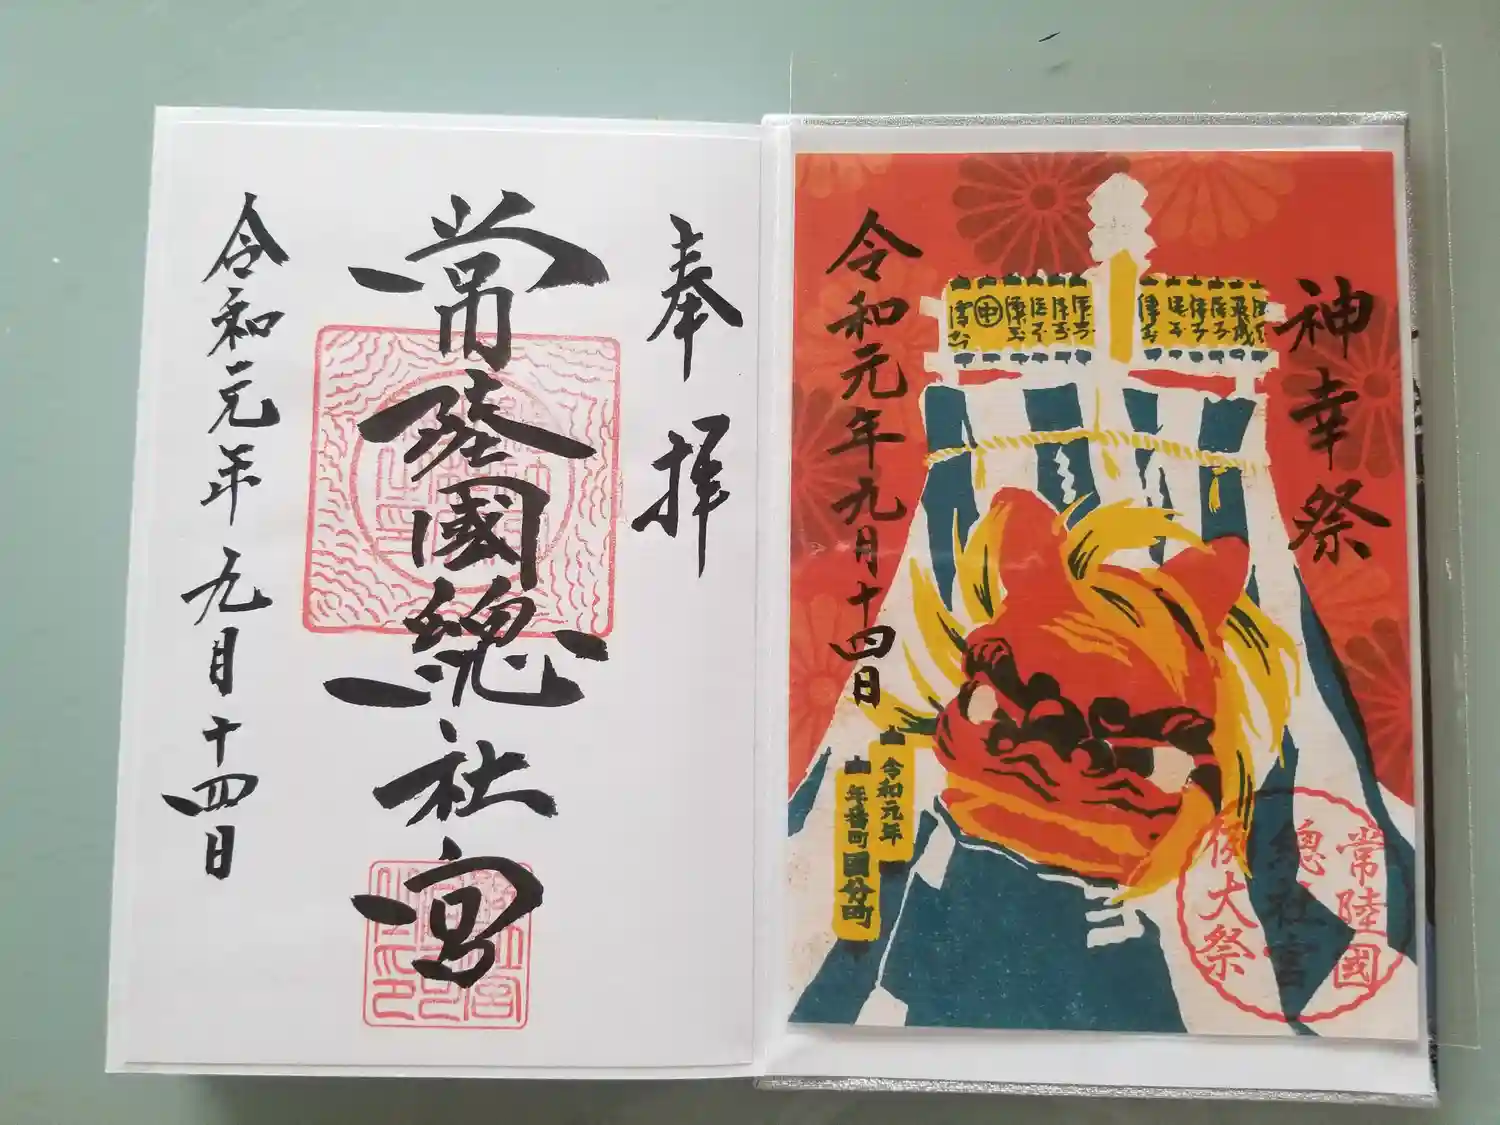 奉拝
常陸國總社宮
令和元年九月十四日
神幸祭
令和元年九月十四日
令和元年
年番町國分町
常陸國
總社宮
例大祭